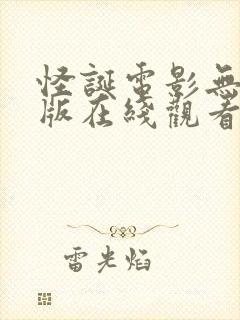 怪誕電影無
版在綫觀看
雷光焰